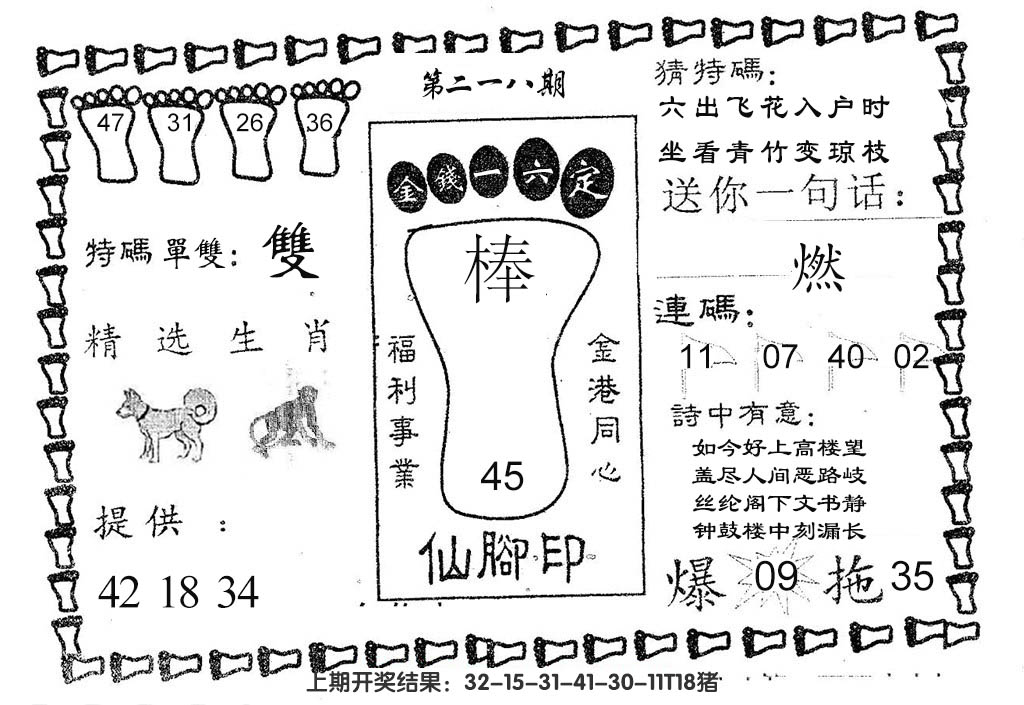 第二一八期
47 31 26 36
特碼單雙：雙
精选生肖
提供：
42 18 34
金錢一六定
棒
福利事業
金港同心
45
仙腳印
猜特碼：
六出飞花入户时
坐看青竹变琼枝
送你一句话：
燃
連碼：
11 07 40 02
詩中有意：
如今好上高楼望
盖尽人间恶路岐
丝纶阁下文书静
钟鼓楼中刻漏长
爆 09 拖 35
上期开奖结果：32-15-31-41-30-11T18猪